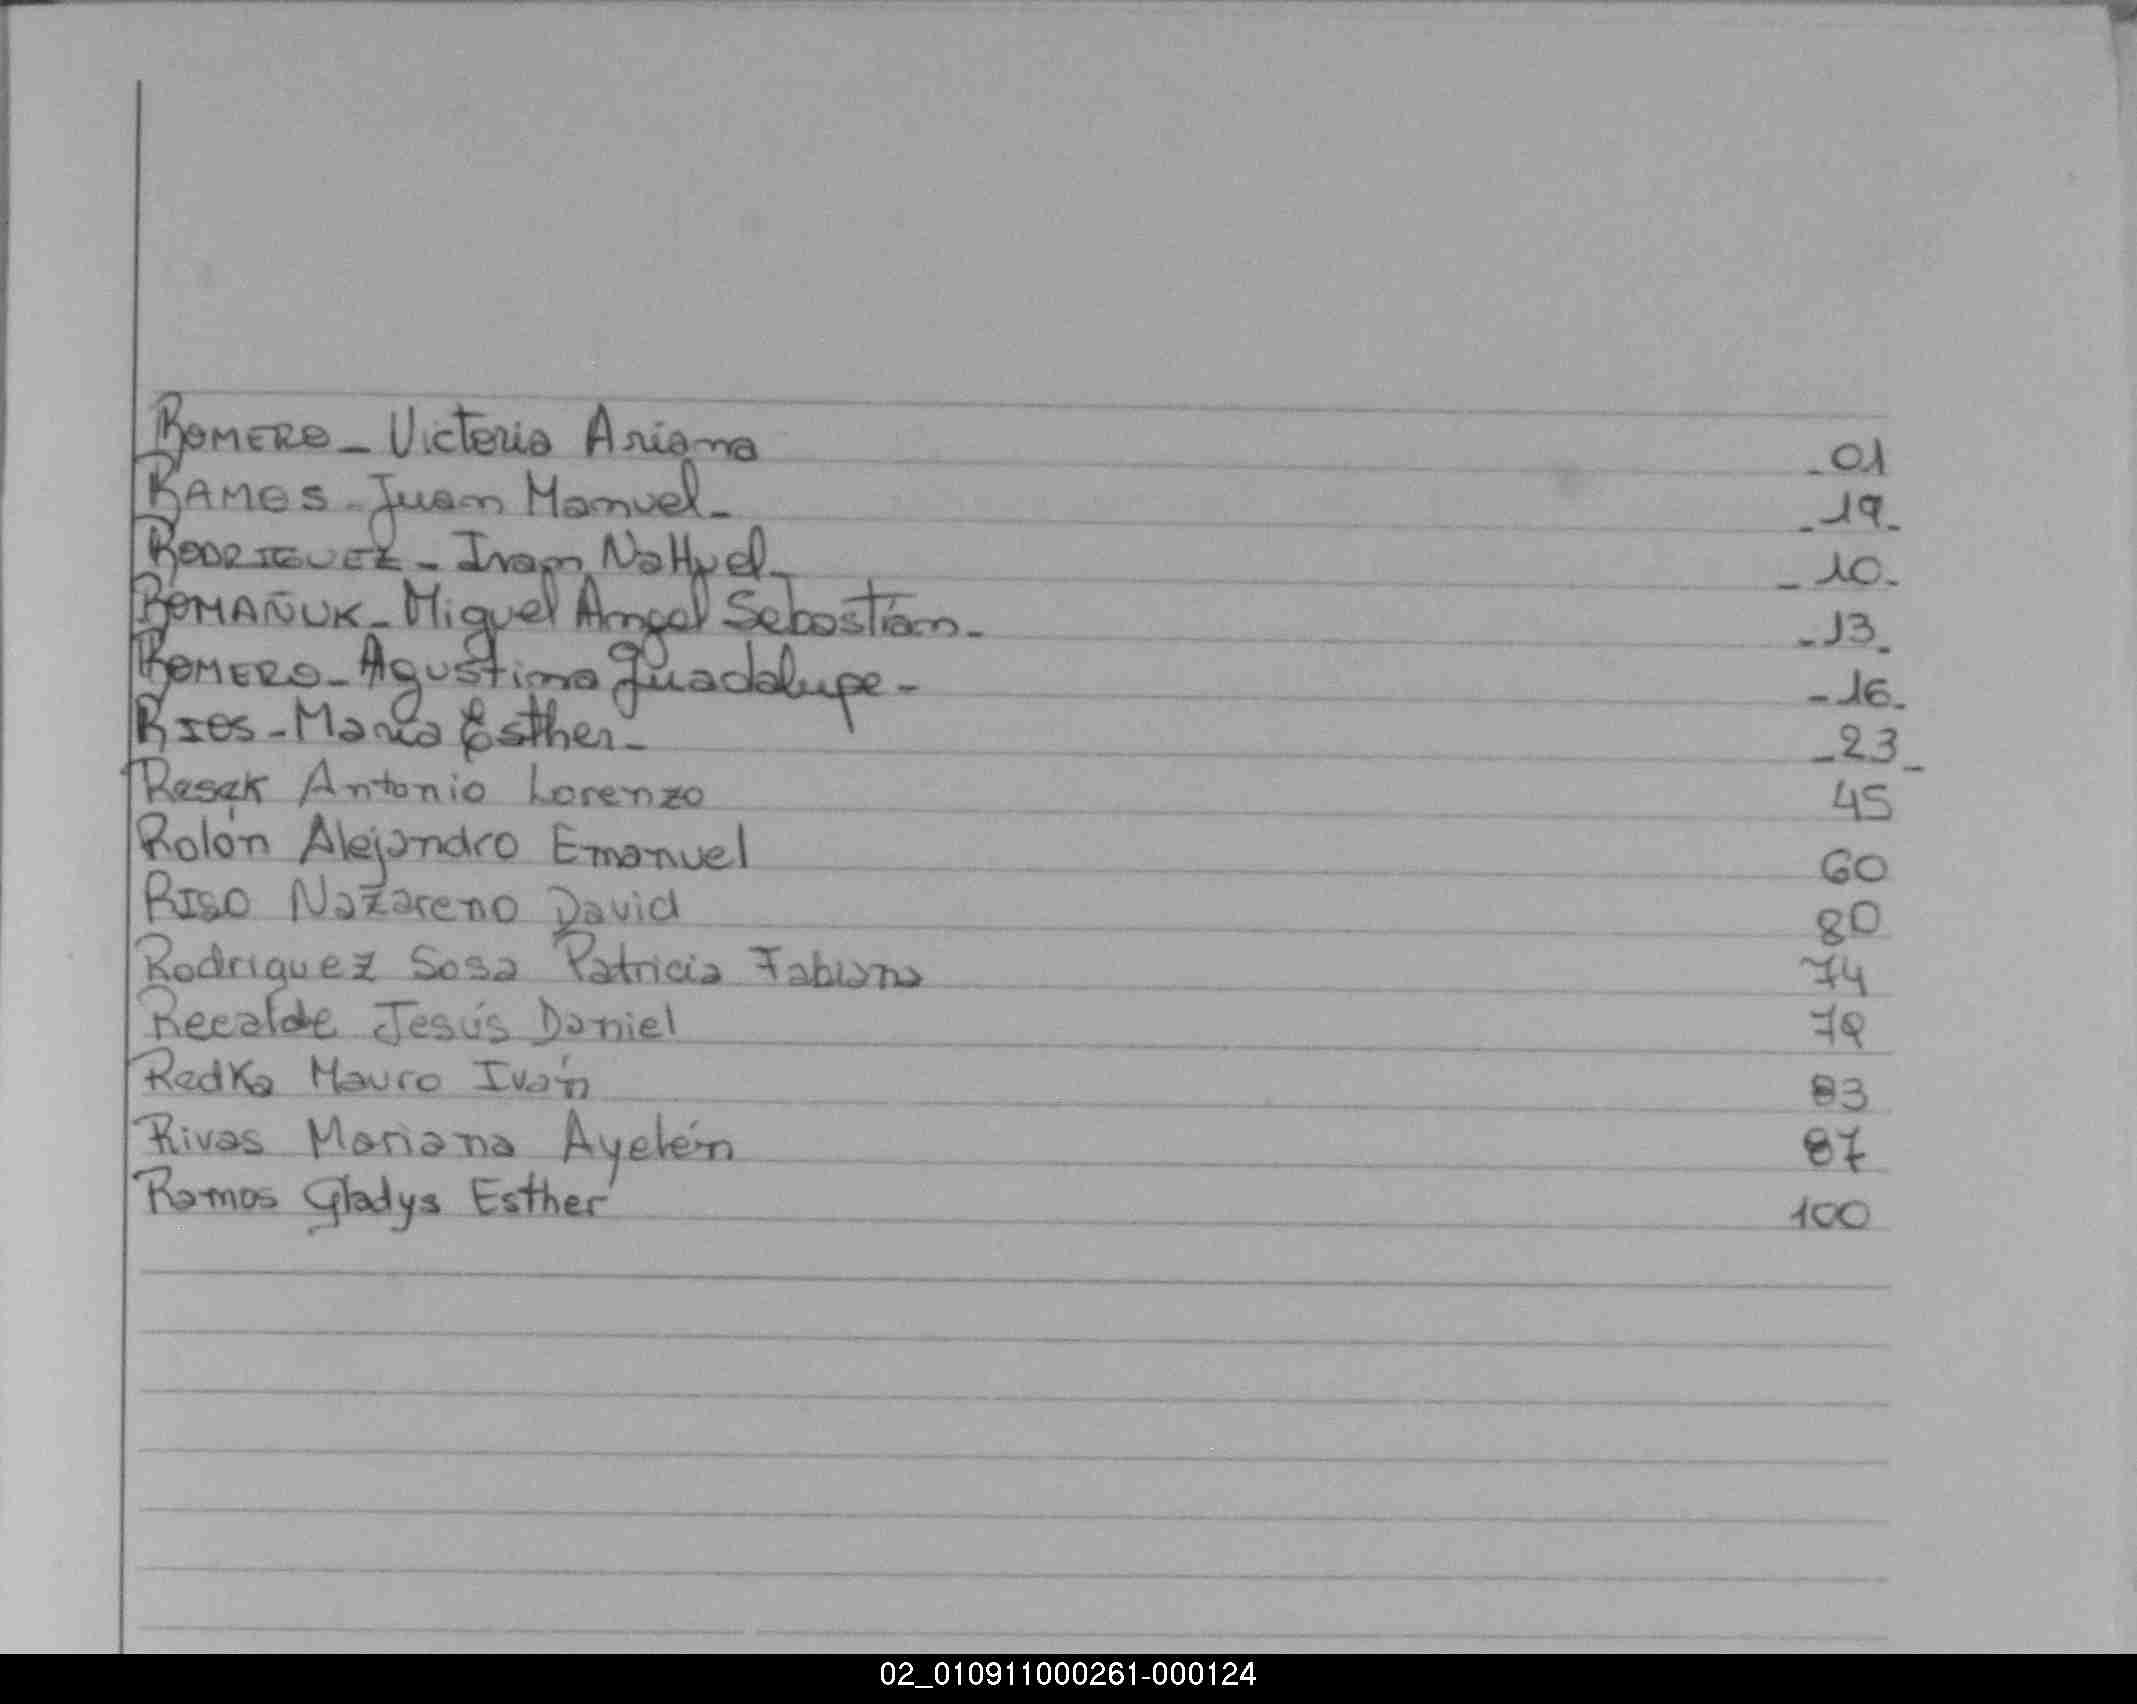 ROMERO_ Victoria Ariana _01
RAMOS_ Juan Manuel_ _19_
RODRIGUEZ_ Ivan NaHuel_ _10_
ROMAÑUK_ Miguel Angel Sebastián_ _13_
ROMERO_ Agustina Guadalupe_ _16_
RIOS_ María Esther_ _23_
Resek Antonio Lorenzo 45
Rolón Alejandro Emanuel 60
RISO Nazareno David 80
Rodriguez Sosa Patricia Fabiana 74
Recalde Jesús Daniel 79
Redka Mauro Iván 83
Rivas Mariana Ayelén 87
Ramos Gladys Esther 100
02_010911000261-000124